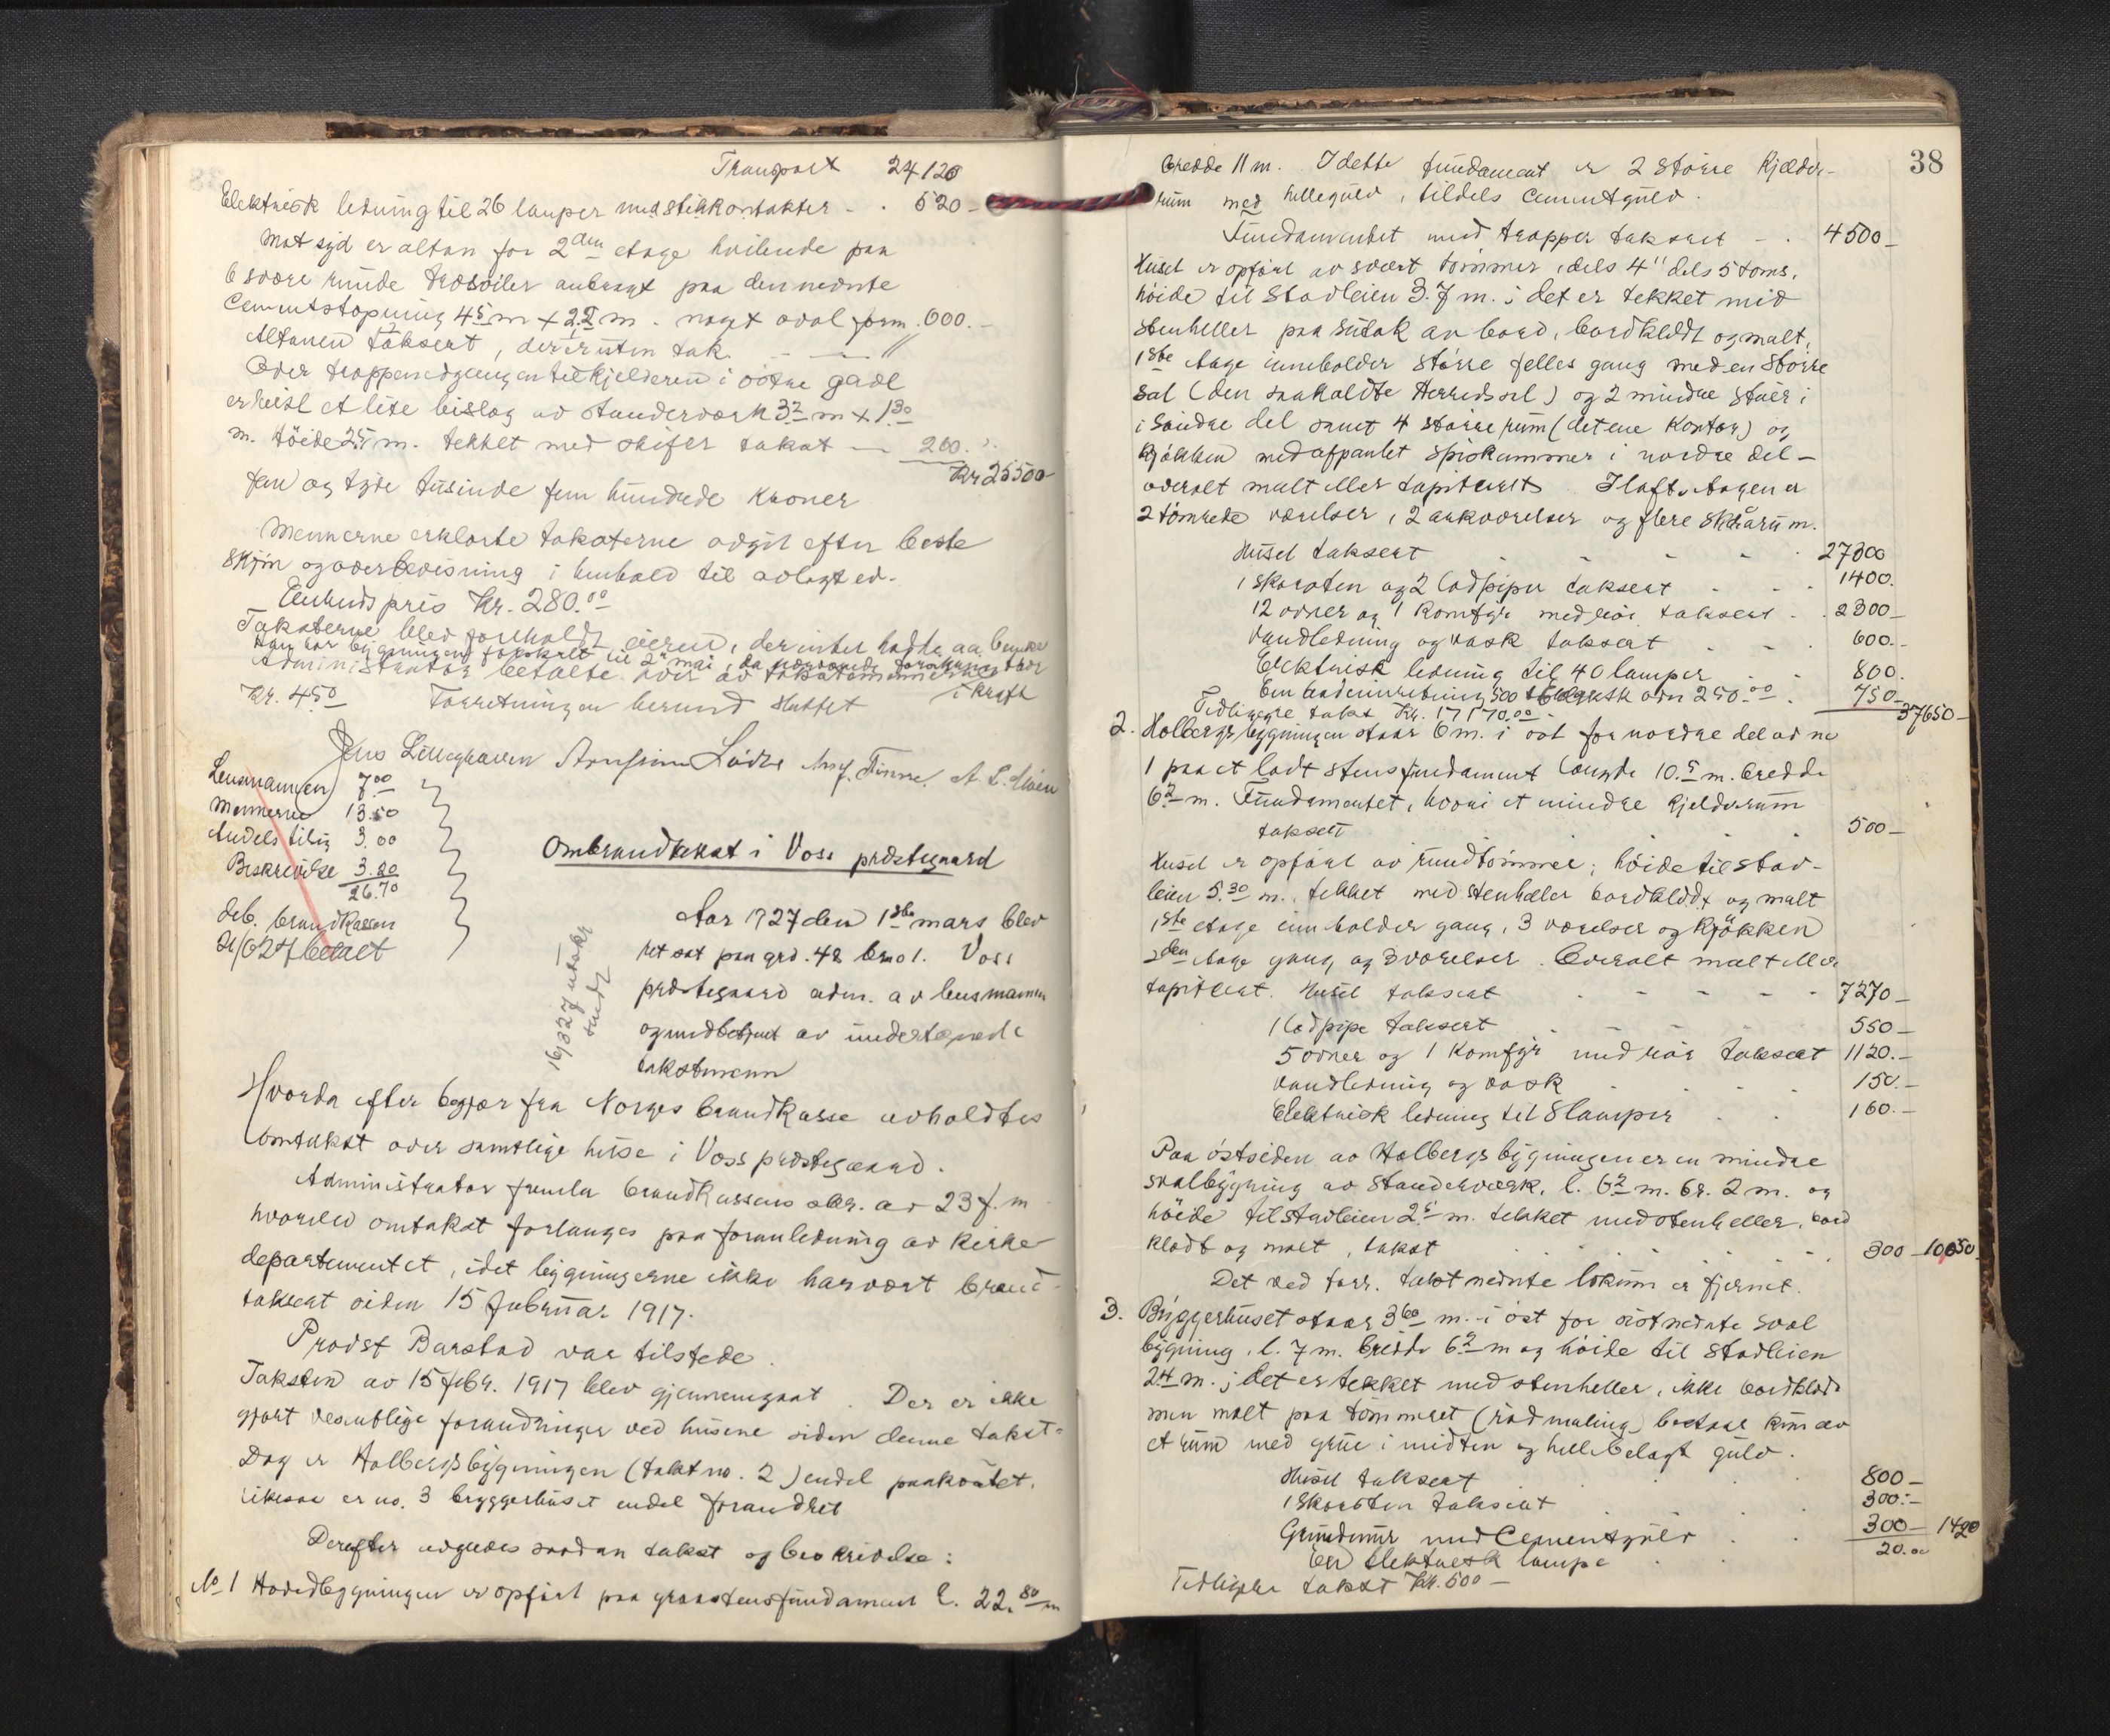 Transport 24120
Elektrisk ledning til 26 lamper med stikkontakter - . 520 -
Mot syd er altan for 2den etage hvilende paa
6 svære runde træsøiler anbragt paa den nævnte
Cementstøpning 4⁵ m x 2.² m. noget oval form. 600.-
Altanen taksert, der er uten tak
Over trappenedgangen til kjelderen i østre gavl
er reist et lite bislag av standerværk 3² m x 1³⁰
m. høide 2⁵ m. tekket med skifer takst - 260.
Kr 25500-
fem og tyve tusinde fem hundrede kroner
Mennerne erklærte taksterne avgit efter beste
skjøn og overbevisning i henhold til avlagt ed.
Enhedspris Kr. 280.⁰⁰
Taksterne blev foreholdt eieren, der intet hadde aa bemerke
Han har bygningen forsikret til 2 mai, da nærværende forsikring træder
i kraft
Administrator betalte hver av takstmennerne
Kr. 4⁵⁰ Forretningen herved sluttet
Jens Lilleghaven Arnfinn Lødve
Lensmannen 7⁰⁰
Mennerne 13.50
Andels tilsig 3.00
Beskrivelse 3.20
26.70
deb. brandkassen
21/6 27 betalt
Ombrandtakst i Voss prestegaard
16/3 27 utskr
sendt
Aar 1927 den 1ste mars blev
ret sat paa grd. 48 brno 1. Voss
prestegaard adm. av lensmannen
og medbetjent av undertegnede
takstmenn
Hvorda efter begjær fra Norges Brandkasse avholdtes
omtakst over samtlige huse i Voss prestegaard.
Administrator fremla brandkassens skr. av 23 f. m
hvorved omtakst forlanges paa foranledning av Kirke
departementet, idet bygningerne ikke har vært brand-
taksert siden 15 februar 1917.
Provst Barstad var tilstede.
Taksten av 15 febr. 1917 blev gjennemgaat. Der er ikke
gjort væsentlige forandringer ved husene siden denne takst-
Dog er Holbergsbygningen (takst no. 2) endel paakostet,
likesaa er no. 3 bryggerhuset endel forandret
Derefter avgaves saadan takst og beskrivelse:
No 1 Hovedbygningen er opført paa graastensfundament l. 22.⁸⁰ m
38
bredde 11 m. I dette fundament er 2 større kjelder-
rum med hellegulv, tildels cementgulv.
Fundamentet med trapper taksert - . 4500-
Huset er opført av svært tømmer, dels 4" dels 5 toms,
høide til Stavleien 3.7 m.; det er tekket med
stenheller paa sutak av bord, bordklædt og malt,
1ste etage inneholder større felles gang med en større
sal (den saakaldte Herredssal) og 2 mindre stuer i
i søndre del samt 4 større rum (det ene kontor) og
kjøkken med afpanlet spiskammer i nordre del -
overalt malt eller tapitsert. I loftsetagen er
2 tømrede værelser, 2 arkværelser og flere skraarum.
Huset taksert 27300
1 skorsten og 2 lodpiper taksert 1400.
12 ovner og 1 Komfyr med rør taksert . 2300-
Vandledning og vask taksert 600.-
Elektrisk ledning til 40 lamper 800.
En badeinretning 500 elektrisk ovn 250.⁰⁰ . 750-
Tidligere takst Kr. 17170.⁰⁰ 37650-
2. Holbergsbygningen staar 6 m. i øst for nordre del av no
1 paa et lødt stensfundament længde 10.⁵ m. bredde
6² m. Fundamentet, hvori et mindre kjelderrum
taksert 500-
Huset er opført av rundtømmer; høide til stav-
leien 5.³⁰ m. tekket med stenheller bordklædt og malt
1ste etage inneholder gang, 3 værelser og kjøkken
2den etage gang og 3 værelser. Overalt malt eller
tapitsert. Huset taksert 7270-
1 lodpipe taksert 550-
5 ovner og 1 Komfyr med rør taksert 1120.-
Vandledning og vask 150.-
Elektrisk ledning til 8 lamper 160.-
Paa østsiden av Holbergsbygningen er en mindre
svalbygning av standerværk, l. 6² m. br. 2 m. og
høide til stavleien 2⁵ m. tekket med stenheller, bord
klædt og malt, takst 300 - 10050-
Det ved forr. takst nevnte lokum er fjernet.
3. Bryggerhuset staar 3⁶⁰ m. i øst for sistnevnte sval
bygning, l. 7 m. bredde 6² m og høide til Stavleien
2⁴ m.; det er tekket med stenheller, ikke bordklædt
men malt paa tømmeret (rød maling) bestaar kun av
et rum med grue i midten og hellebelagt gulv.
Huset taksert 800-
1 skorsten taksert 300.-
Grundmur med Cementgulv 300- 1420
En elektrisk lampe 20.00
Tidligere takst Kr. 500-